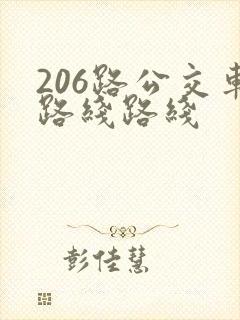 206路公交车
路线路线
彭佳慧